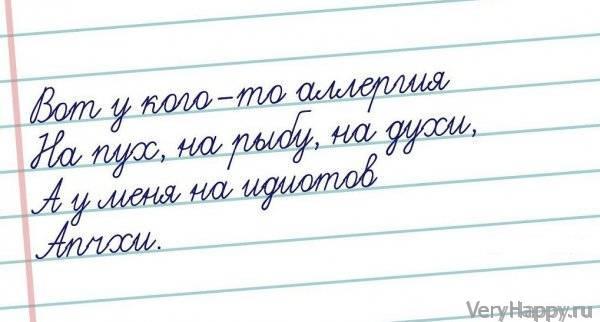 Вот у кого-то аллергия
На пух, на рыбу, на духи,
А у меня на идиотов
Апчхи.
VeryHappy.ru